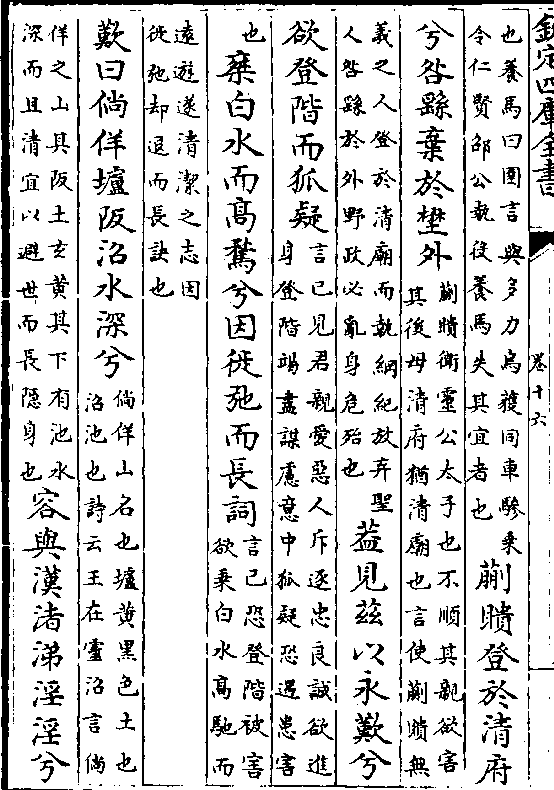 欽定四庫全書
卷十六
也養馬曰圉言與多力烏獲同車驂乗
令仁賢邵公執役養馬失其宜者也
蒯聵登於清府
兮咎繇棄於壄外
蒯聵衛靈公太子也不順其親欲害
其後母清府猶清廟也言使蒯聵無
義之人登於清廟而執綱紀放弃聖
人咎繇於外野政必亂身危殆也
葢見兹以永歎兮
欲登階而狐疑
言已見君親愛惡人斥逐忠良誠欲進
身登階竭盡謀慮意中狐疑恐遇患害
也
椉白水而髙騖兮因徙弛而長詞
言已恐登階被害
欲乗白水髙馳而
逺遊遂清潔之志因
徙弛却退而長訣也
歎曰倘佯壚阪沼水深兮
倘佯山名也壚黄黒色土也
沼池也詩云王在靈沼言倘
佯之山其阪土玄黄其下有池水
深而且清宜以避世而長隠身也
容與漢渚涕淫淫兮